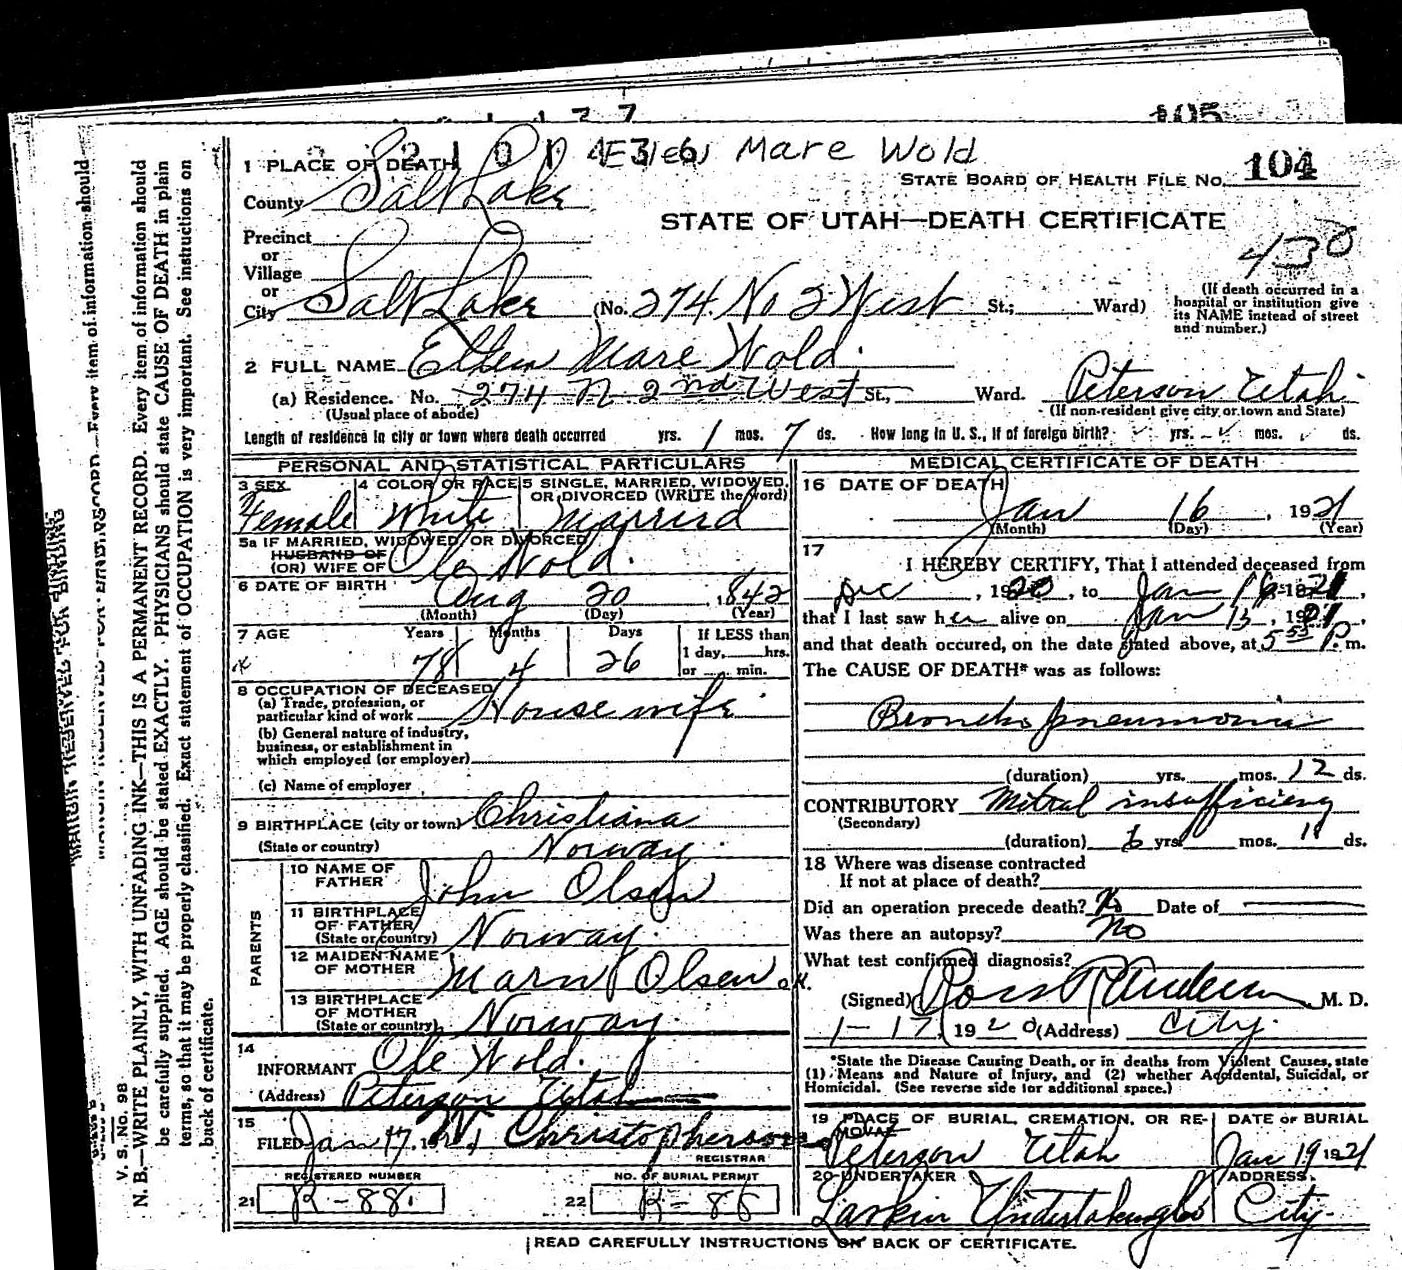 105
Mare Wold
1 PLACE OF DEATH
STATE BOARD OF HEALTH FILE No. 104
County Salt Lake
STATE OF UTAH—DEATH CERTIFICATE
Precinct
or
Village
or
City Salt Lake (No. 274 No 2 West St.; Ward)
430
(If death occurred in a
hospital or institution give
its NAME instead of street
and number.)
2 FULL NAME Ellen Mare Wold.
(a) Residence. No. 274 N 2nd West St., Ward. Peterson Utah
(Usual place of abode)
(If non-resident give city or town and State)
Length of residence in city or town where death occurred yrs. 1 mos. 7 ds. How long in U. S., if of foreign birth? yrs. mos. ds.
PERSONAL AND STATISTICAL PARTICULARS
3 SEX
Female
4 COLOR OR RACE
White
5 SINGLE, MARRIED, WIDOWED,
OR DIVORCED (WRITE the word)
Married
5a IF MARRIED, WIDOWED, OR DIVORCED
HUSBAND OF
(OR) WIFE OF Ole Wold.
6 DATE OF BIRTH Aug 20, 1842
(Month) (Day) (Year)
7 AGE Years Months Days
78 4 26
If LESS than
1 day, hrs.
or min.
8 OCCUPATION OF DECEASED
(a) Trade, profession, or
particular kind of work Housewife
(b) General nature of industry,
business, or establishment in
which employed (or employer)
(c) Name of employer
9 BIRTHPLACE (city or town) Christiana
(State or country) Norway.
PARENTS
10 NAME OF
FATHER John Olsen
11 BIRTHPLACE
OF FATHER
(State or country) Norway.
12 MAIDEN NAME
OF MOTHER Marn Olsen o.k.
13 BIRTHPLACE
OF MOTHER
(State or country) Norway.
14
INFORMANT Ole Wold.
(Address) Peterson Utah
15
FILED Jan 17, 1921 Christopherson
REGISTRAR
REGISTERED NUMBER
21 R-88.
NO. OF BURIAL PERMIT
22 R-86
MEDICAL CERTIFICATE OF DEATH
16 DATE OF DEATH
Jan 16, 1921
(Month) (Day) (Year)
17
I HEREBY CERTIFY, That I attended deceased from
Dec, 1920, to Jan 16 1921,
that I last saw her alive on Jan 15, 1921,
and that death occured, on the date stated above, at 5 55 P. m.
The CAUSE OF DEATH* was as follows:
Broncho pneumonia
(duration) yrs. mos. 12 ds.
CONTRIBUTORY Mitral insufficiency
(Secondary)
(duration) yrs. mos. ds.
18 Where was disease contracted
If not at place of death?
Did an operation precede death? No Date of
Was there an autopsy? No
What test confirmed diagnosis?
(Signed) Ross Anderson M. D.
1-17, 1920 (Address) City.
*State the Disease Causing Death, or in deaths from Violent Causes, state
(1) Means and Nature of Injury, and (2) whether Accidental, Suicidal, or
Homicidal. (See reverse side for additional space.)
19 PLACE OF BURIAL, CREMATION, OR RE-
MOVAL
Peterson Utah
DATE OF BURIAL
Jan 19 1921
20 UNDERTAKER
Larkin Undertaking Co
ADDRESS
City.
READ CAREFULLY INSTRUCTIONS ON BACK OF CERTIFICATE.
V. S. No. 98
N. B.—WRITE PLAINLY, WITH UNFADING INK—THIS IS A PERMANENT RECORD. Every item of information should
be carefully supplied. AGE should be stated EXACTLY. PHYSICIANS should state CAUSE OF DEATH in plain
terms, so that it may be properly classified. Exact statement of OCCUPATION is very important. See instructions on
back of certificate.